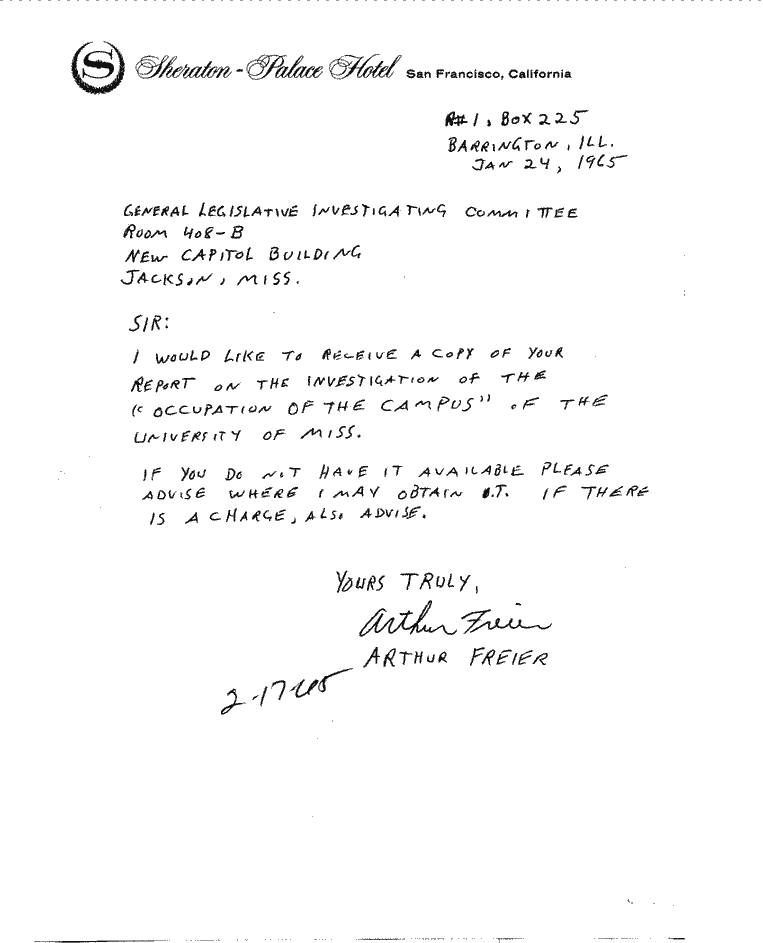 S Sheraton-Palace Hotel San Francisco, California
R#1, BOX 225
BARRINGTON, ILL.
JAN 24, 1965
GENERAL LEGISLATIVE INVESTIGATING COMMITTEE
ROOM 408-B
NEW CAPITOL BUILDING
JACKSON, MISS.
SIR:
I WOULD LIKE TO RECEIVE A COPY OF YOUR
REPORT ON THE INVESTIGATION OF THE
"OCCUPATION OF THE CAMPUS" OF THE
UNIVERSITY OF MISS.
IF YOU DO NOT HAVE IT AVAILABLE PLEASE
ADVISE WHERE I MAY OBTAIN IT. IF THERE
IS A CHARGE, ALSO ADVISE.
YOURS TRULY,
Arthur Freier
ARTHUR FREIER
2-17-65